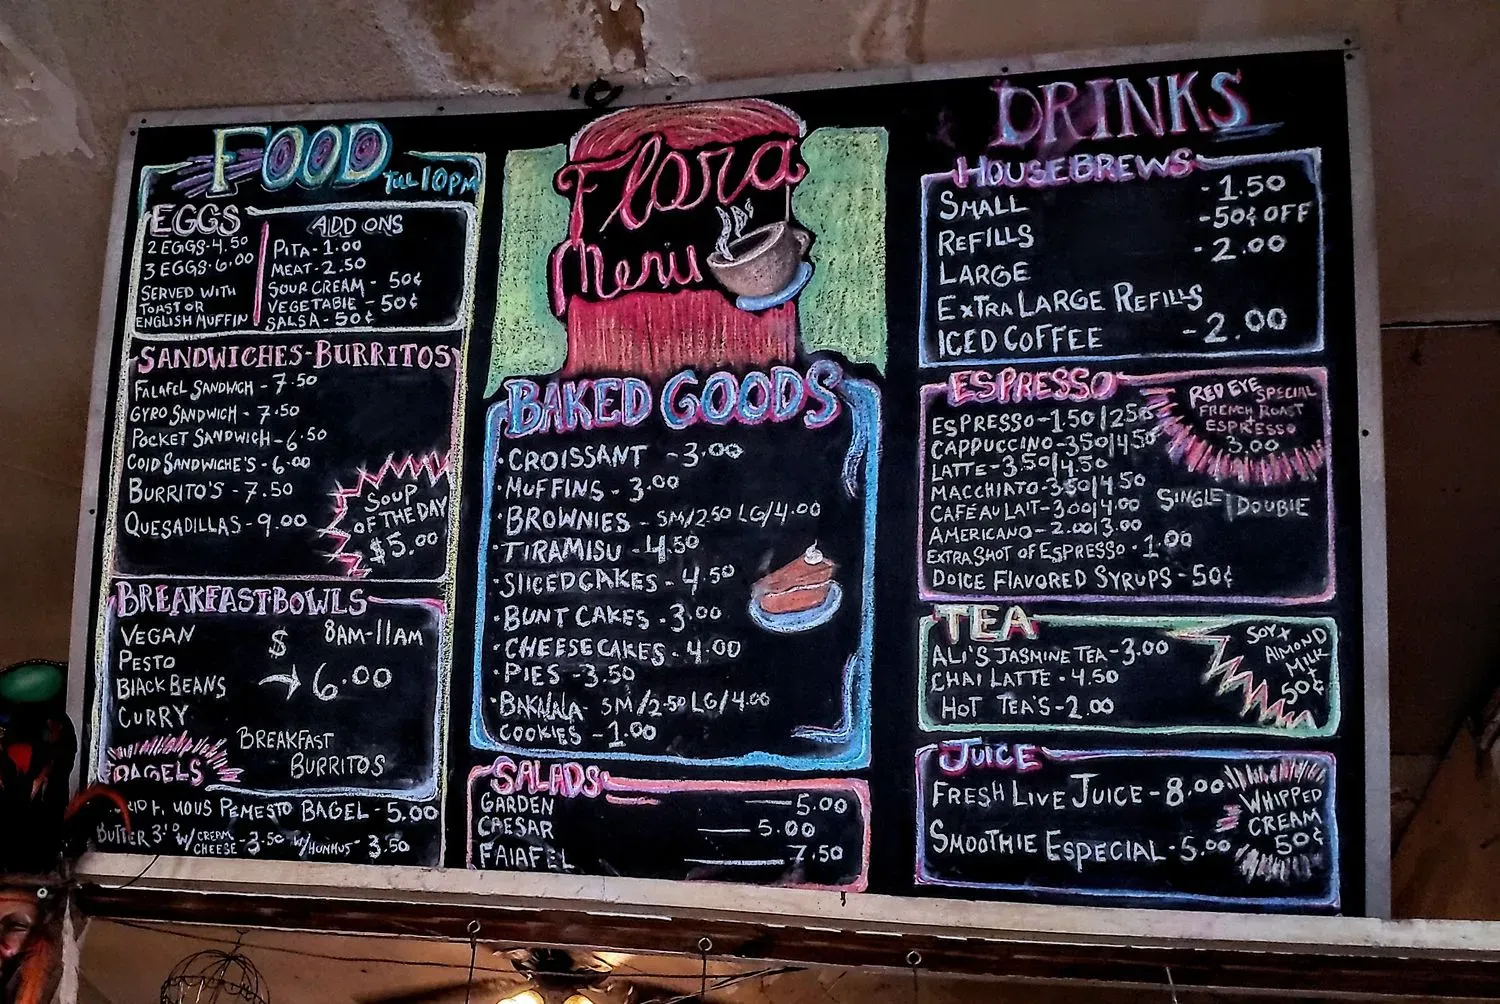 FOOD TILL 10PM
EGGS
2 EGGS-4.50
3 EGGS-6.00
SERVED WITH
TOAST OR
ENGLISH MUFFIN
ADD ONS
PITA-1.00
MEAT-2.50
SOUR CREAM - 50¢
VEGETABLE - 50¢
SALSA - 50¢
SANDWICHES-BURRITOS
FALAFEL SANDWICH - 7.50
GYRO SANDWICH - 7.50
POCKET SANDWICH - 6.50
COLD SANDWICHE'S - 6.00
BURRITO'S - 7.50
QUESADILLAS - 9.00
SOUP
OF THE DAY
$5.00
BREAKFAST BOWLS
VEGAN
PESTO
BLACK BEANS
CURRY
$ 8AM-11AM
6.00
BREAKFAST
BURRITOS
BAGELS
PEMESTO BAGEL - 5.00
BUTTER W/CREAM CHEESE - 3.50 W/HUMMUS - 3.50
Flora
Menu
BAKED GOODS
·CROISSANT - 3.00
·MUFFINS - 3.00
·BROWNIES - SM/2.50 LG/4.00
·TIRAMISU - 4.50
·SLICED CAKES - 4.50
·BUNT CAKES - 3.00
·CHEESECAKES - 4.00
·PIES - 3.50
·BAKALALA - SM/2.50 LG/4.00
COOKIES - 1.00
SALADS
GARDEN 5.00
CAESAR 5.00
FALAFEL 7.50
DRINKS
HOUSEBREWS
SMALL - 1.50
REFILLS - 50¢ OFF
LARGE - 2.00
EXTRA LARGE REFILLS
ICED COFFEE - 2.00
ESPRESSO
ESPRESSO-1.50|2.50
CAPPUCCINO-3.50|4.50
LATTE-3.50|4.50
MACCHIATO-3.50|4.50
CAFÉ AU LAIT-3.00|4.00
AMERICANO-2.00|3.00
EXTRA SHOT OF ESPRESSO - 1.00
DOLCE FLAVORED SYRUPS - 50¢
RED EYE SPECIAL
FRENCH ROAST
ESPRESSO
3.00
SINGLE|DOUBLE
TEA
ALI'S JASMINE TEA-3.00
CHAI LATTE - 4.50
HOT TEA'S-2.00
SOY X
ALMOND
MILK
50¢
JUICE
FRESH LIVE JUICE - 8.00
SMOOTHIE ESPECIAL - 5.00
WHIPPED
CREAM
50¢